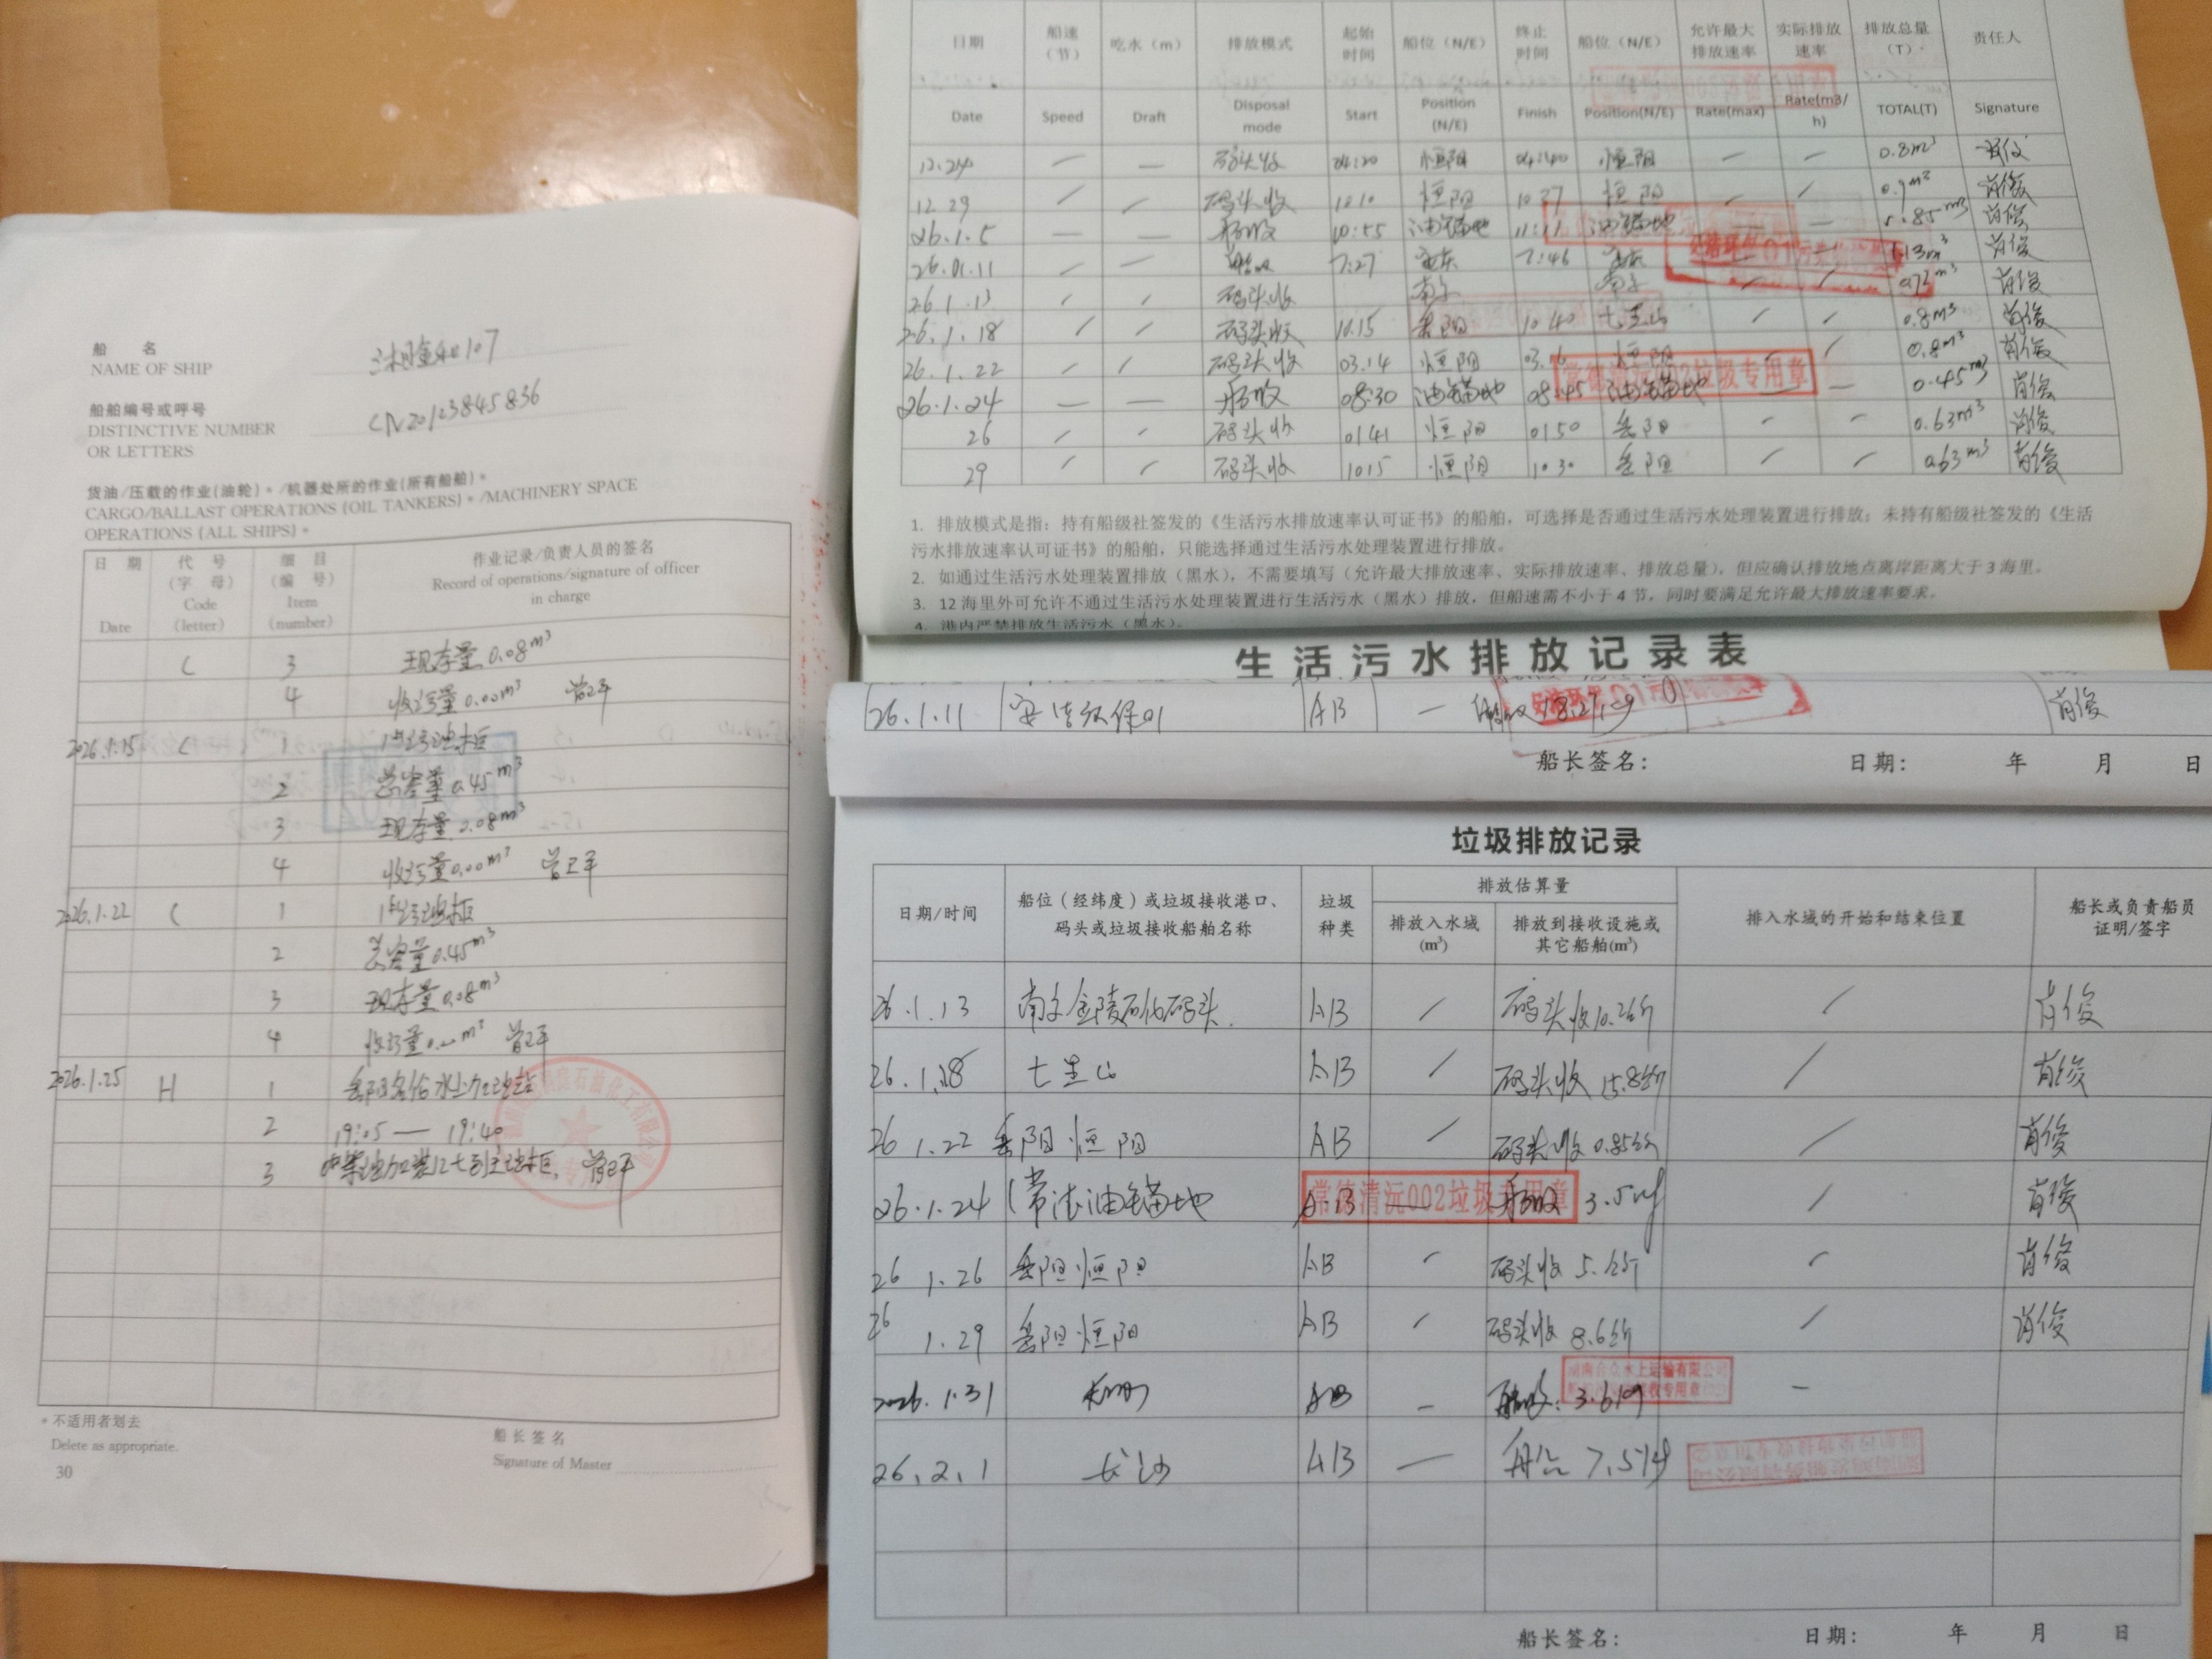 船名
NAME OF SHIP
107
船舶编号或呼号
CN20123845836
DISTINCTIVE NUMBER
OR LETTERS
货油/压载的作业(油轮)。/机器处所的作业(所有船舶)。
CARGO/BALLAST OPERATIONS (OIL TANKERS)*/MACHINERY SPACE
OPERATIONS (ALL SHIPS)*
日期 代号 细目 作业记录/负责人员的签名
(字母) (编号) Record of operations/signature of officer
Code Item in charge
Date (letter) (number)
C 3 现存量0.08m³
4 收污量0.00m³
2026.1.15 C 1
2 总容量0.45m³
3 现存量0.08m³
4 收污量0.00m³
2026.1.22 C 1
2 总容量0.45m³
3 现存量0.08m³
4 收污量
2026.1.25 H 1 水上加油站
2 19:05 — 19:40
3
*不适用者划去
Delete as appropriate.
船长签名
Signature of Master
30
日期 船速(节) 吃水(m) 排放模式 起始时间 船位(N/E) 终止时间 船位(N/E) 允许最大排放速率 实际排放速率 排放总量(T) 责任人
Date Speed Draft Disposal mode Start Position (N/E) Finish Position(N/E) Rate(max) Rate(m3/h) TOTAL(T) Signature
12.24 — — 码头收 04:20 恒阳 04:40 恒阳 — — 0.8m³
12 29 / / 码头收 1010 恒阳 10 27 恒阳 / 0.9m³ 肖俊
26.1.5 — — 船收 10:55 油锚地 油锚地 — 肖俊
26.01.11 / / 船收 7:27 7:46 肖俊
26.1.13 / / 码头收 南京 南京 肖俊
26.1.18 / / 码头收 10.15 岳阳 10 40 七里山 / / 0.8m³ 肖俊
26.1.22 / / 码头收 03.14 恒阳 恒阳 / / 0.8m³ 肖俊
26.1.24 — — 船收 08:30 油锚地 08:45 油锚地 — — 0.45m³ 肖俊
26 / / 码头收 0141 恒阳 0150 岳阳 / / 0.63m³ 肖俊
29 / / 码头收 1015 恒阳 10 30 岳阳 / / 0.63m³ 肖俊
常德清沅002垃圾专用章
1. 排放模式是指：持有船级社签发的《生活污水排放速率认可证书》的船舶，可选择是否通过生活污水处理装置进行排放；未持有船级社签发的《生活
污水排放速率认可证书》的船舶，只能选择通过生活污水处理装置进行排放。
2. 如通过生活污水处理装置排放（黑水），不需要填写（允许最大排放速率、实际排放速率、排放总量），但应确认排放地点离岸距离大于3海里。
3. 12海里外可允许不通过生活污水处理装置进行生活污水（黑水）排放，但船速需不小于4节，同时要满足允许最大排放速率要求。
4. 港内严禁排放生活污水（黑水）。
生活污水排放记录表
26.1.11 安庆环保01 AB — 肖俊
船长签名： 日期： 年 月 日
垃圾排放记录
日期/时间 船位（经纬度）或垃圾接收港口、码头或垃圾接收船舶名称 垃圾种类 排放估算量 排入水域的开始和结束位置 船长或负责船员证明/签字
排放入水域(m³) 排放到接收设施或其它船舶(m³)
26.1.13 南京金陵石化码头 AB / 码头收10.2公斤 / 肖俊
26.1.18 七里山 AB / 码头收 15.8公斤 / 肖俊
26 1.22 岳阳恒阳 AB / 码头收 0.85公斤 / 肖俊
26.1.24 常德油锚地 AB — 船收 / 肖俊
常德清沅002垃圾专用章
26 1.26 岳阳恒阳 AB / 码头收 / 肖俊
26 1.29 岳阳恒阳 AB / 码头收 8.6公斤 / 肖俊
2026.1.31 AB — —
26.2.1 长沙 AB —
船长签名： 日期： 年 月 日